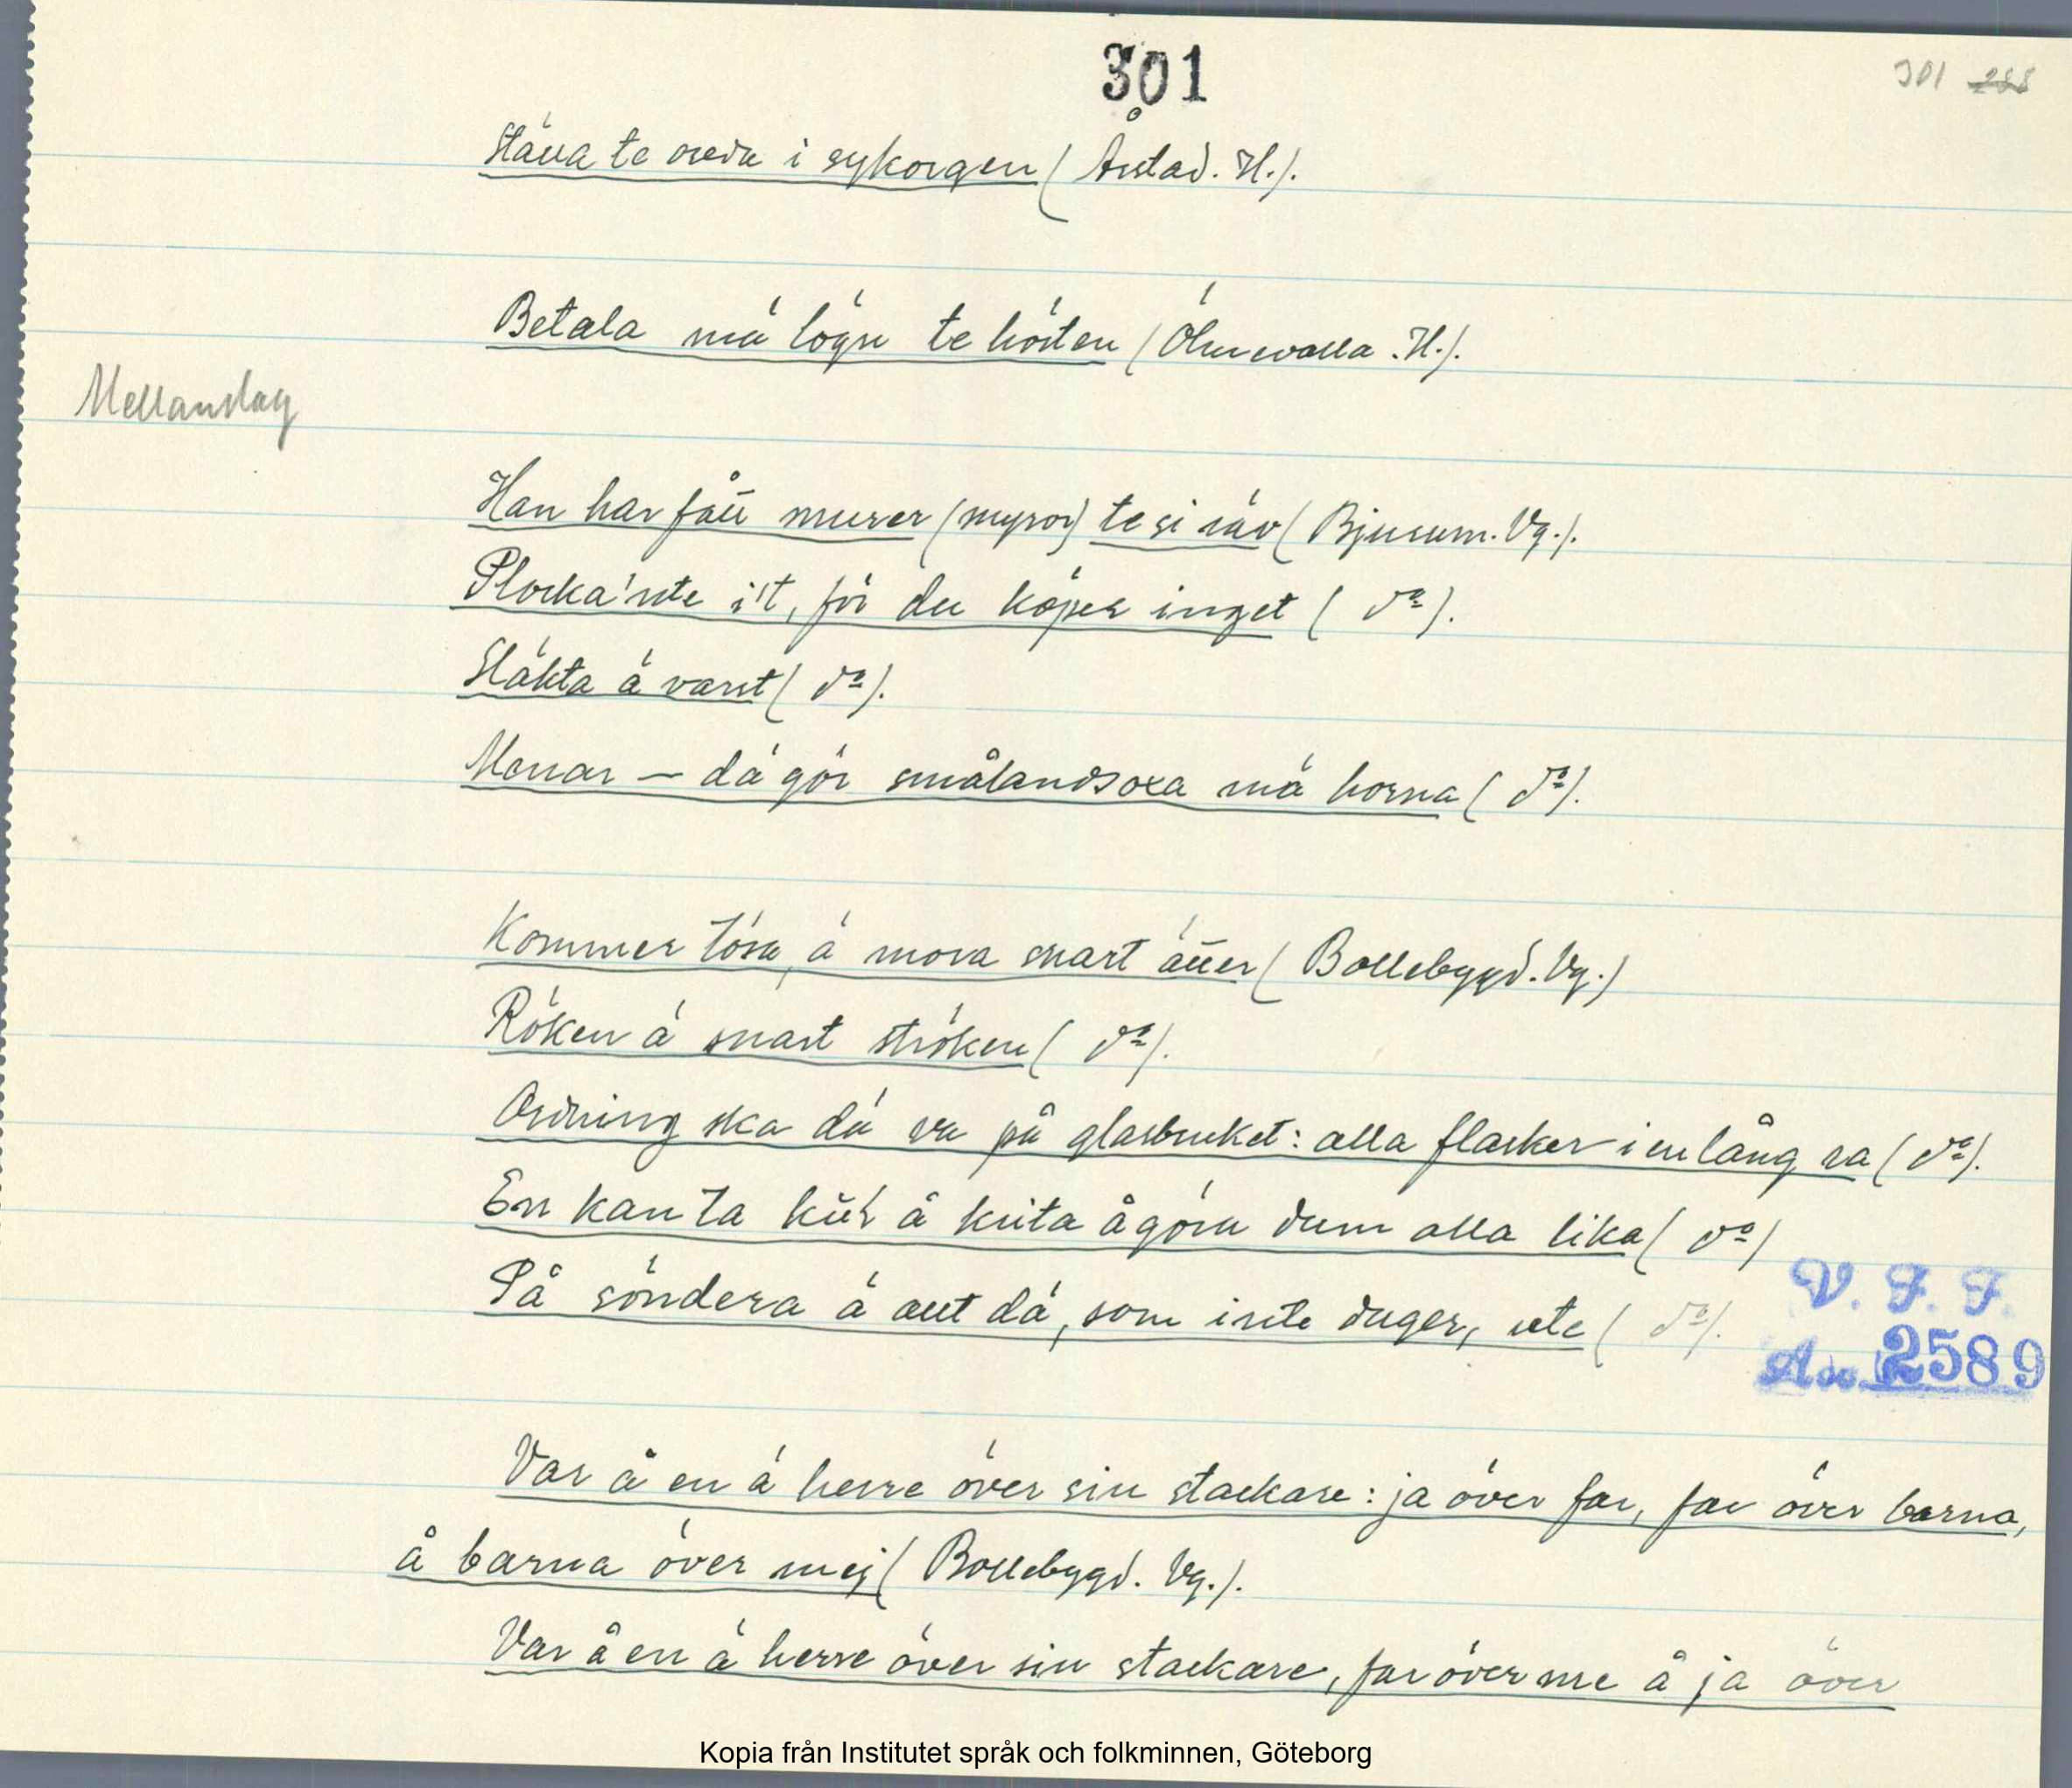 301
301 288
Stäva te oreda i sykorgen (Årstad. H.).
Betala mä lögn te hösten (Ölmevalla. H.).
Mellanslag
Han har fått murer (myror) te si räv (Bjurum. Vg.).
Plocka'nte i't, för du köper inget (dº).
Släkta ä varst (dº).
Menar — dä gör smålandsoxa mä horna (dº).
Kommer tösa, ä mora snart ätter (Bollebygd. Vg.)
Röken ä snart ströken (dº).
Ordning ska dä va på glasbruket: alla flasker i en lång ra (dº).
En kan ta å krita å göra dum alla lika (dº)
På söndera ä aut dä, som inte duger, ute (dº).
V. F. F.
Acc. 2589
Var å en ä herre över sin stackare: ja över far, far över barna,
å barna över mej (Bollebygd. Vg.).
Var å en ä herre över sin stackare, far över me å ja över
Kopia från Institutet språk och folkminnen, Göteborg